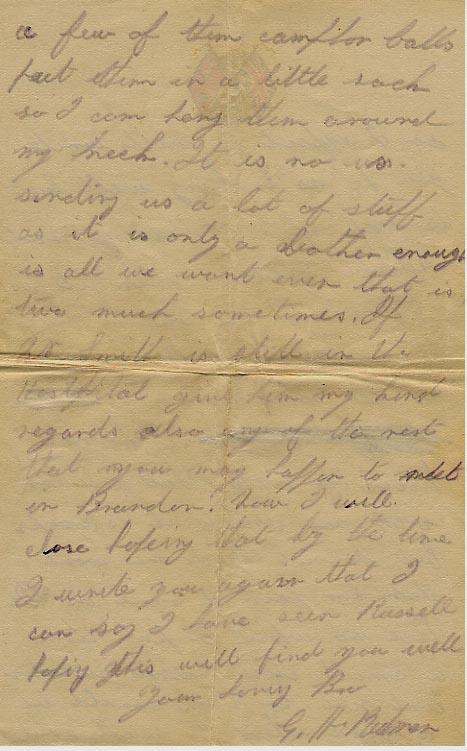 a few of them camfor balls
put them in a little sack
so I can hang them around
my neck. It is no us.
sending us a lot of stuff
as it is only a bother enough
is all we want even that is
two much sometimes. If
Smith is still in the
Hospital give him my kind
regards also any of the rest
that you may happen to meet
in Brandon. Now I will
close hopeing that by the time
I write you again that I
can say I have seen Russell
hopeing this will find you well
Your loving Bro
G. H.